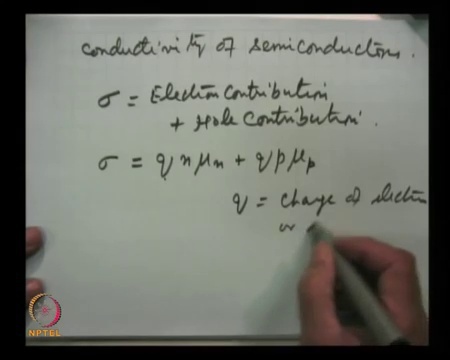 conductivity of semiconductors.
σ = Electron contribution
+ Hole contribution.
σ = q n μn + q p μp
q = charge of electron
or
NPTEL